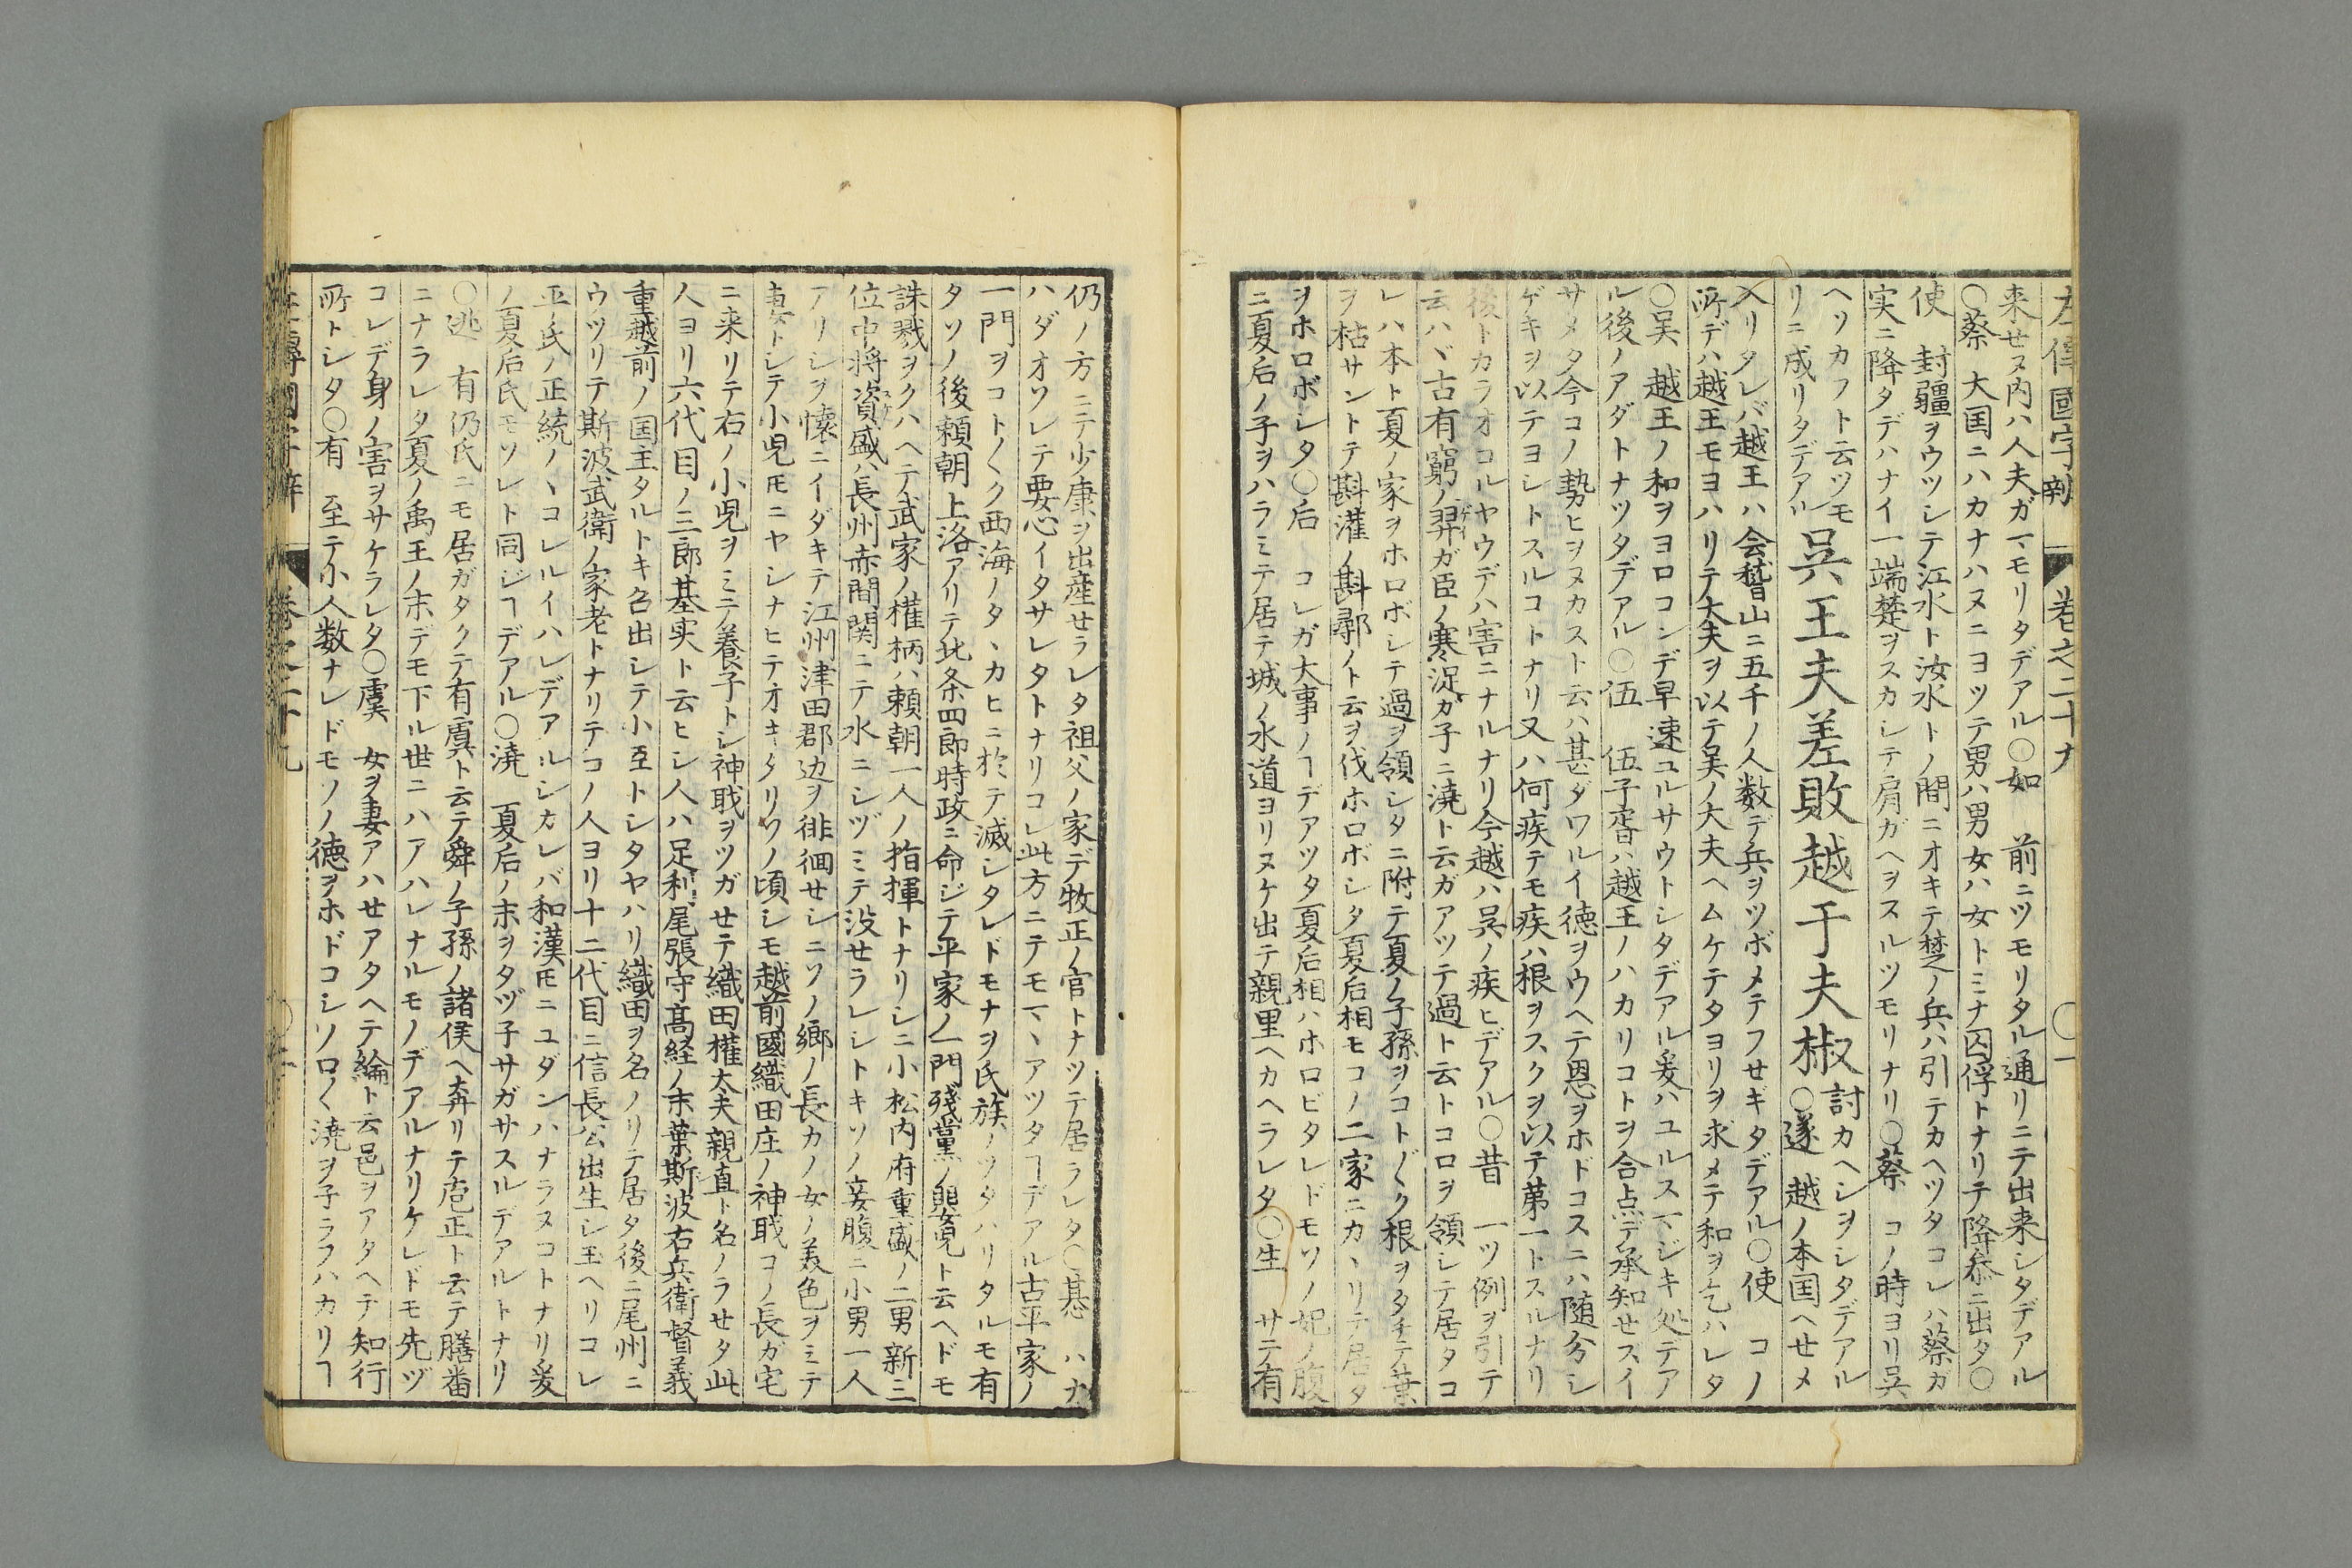 左傳國字辯 卷之二十九 〇一
来セヌ内ハ人夫ガマモリタデアル〇如 前ニツモリタル通リニテ出来シタデアル
〇蔡 大国ニハカナハヌニヨツテ男ハ男女ハ女トミナ囚俘トナリテ降参ニ出タ〇
使 封疆ヲウツシテ江水ト汝水トノ間ニオキテ楚ノ兵ハ引テカヘツタコレハ蔡ガ
実ニ降タデハナイ一端楚ヲスカシテ肩ガヘヲスルツモリナリ〇蔡 コノ時ヨリ呉
ヘツカフト云ツモ
リニ成リタデアル
呉王夫差敗越于夫椒
討カヘシヲシタデアル
〇遂 越ノ本国ヘセメ
入リタレバ越王ハ会稽山ニ五千ノ人数デ兵ヲツボメテフセギタデアル〇使 コノ
所デハ越王モヨハリテ大夫ヲ以テ呉ノ大夫ヘムケテタヨリヲ求メテ和ヲ乞ハレタ
〇呉 越王ノ和ヲヨロコンデ早速ユルサウトシタデアル爰ハユルスマジキ処デア
ル後ノアダトナツタデアル〇伍 伍子胥ハ越王ノハカリコトヲ合点デ承知セスイ
サメタ今コノ勢ヒヲヌカスト云ハ甚ダワルイ徳ヲウヘテ恩ヲホドコスニハ随分シ
ゲキヲ以テヨシトスルコトナリ又ハ何疾テモ疾ハ根ヲスクヲ以テ第一トスルナリ
後トカラオコルヤウデハ害ニナルナリ今越ハ呉ノ疾ヒデアル〇昔 一ツ例ヲ引テ
云ハヾ古有窮ノ羿ガ臣ノ寒浞ガ子ニ澆ト云ガアツテ過ト云トコロヲ領シテ居タコ
レハ本ト夏ノ家ヲホロボシテ過ヲ領シタニ附テ夏ノ子孫ヲコト〲ク根ヲタチテ葉
ヲ枯サントテ斟灌ノ斟鄩ノト云ヲ伐ホロボシタ夏后相モコノ二家ニカヽリテ居タ
ヲホロボシタ〇后 コレガ大事ノヿデアツタ夏后相ハホロビタレドモソノ妃ノ腹
ニ夏后ノ子ヲハラミテ居テ城ノ水道ヨリヌケ出テ親里ヘカヘラレタ〇生 サテ有
仍ノ方ニテ少康ヲ出産セラレタ祖父ノ家デ牧正ノ官トナツテ居ラレタ〇惎 ハナ
ハダオソレテ要心イタサレタトナリコレ此方ニテモマヽアツタヿデアル古平家ノ
一門ヲコト〲ク西海ノタヽカヒニ於テ滅シタレドモナヲ氏族ノツタハリタルモ有
タソノ後頼朝上洛アリテ北条四郎時政ニ命ジテ平家ノ一門残黨ノ與寃ト云ヘドモ
誅戮ヲクハヘテ武家ノ権柄ハ頼朝一人ノ指揮トナリシニ小松内府重盛ノ二男新三
位中将資盛ハ長州赤間関ニテ水ニシヅミテ没セラレシトキソノ妾腹ニ小男一人
アリシヲ懐ニイダキテ江州津田郡辺ヲ徘徊セシニソノ郷ノ長カノ女ノ美色ヲミテ
妻トシテ小児𪜈ニヤシナヒテオキタリソノ頃シモ越前國織田庄ノ神職コノ長ガ宅
ニ来リテ右ノ小児ヲミテ養子トシ神職ヲツガセテ織田権太夫親直ト名ノラセタ此
人ヨリ六代目ノ三郎基実ト云ヒシ人ハ足利尾張守高経ノ末葉斯波右兵衛督義
重越前ノ国主タルトキ召出シテ小臣トシタヤハリ織田ヲ名ノリテ居タ後ニ尾州ニ
ウツリテ斯波武衛ノ家老トナリテコノ人ヨリ十二代目ニ信長公出生シ玉ヘリコレ
平氏ノ正統ノヽコレルイハレデアルシカレバ和漢𪜈ニユダンハナラヌコトナリ爰
ノ夏后氏モソレト同ジヿデアル〇澆 夏后ノ末ヲタヅ子サガサスルデアルトナリ
〇逃 有仍氏ニモ居ガタクテ有虞ト云テ舜ノ子孫ノ諸侯ヘ奔リテ庖正ト云テ膳番
ニナラレタ夏ノ禹王ノ末デモ下ル世ニハアハレナルモノデアルナリケレドモ先ヅ
コレデ身ノ害ヲサケラレタ〇虞 女ヲ妻アハセアタヘテ綸ト云邑ヲアタヘテ知行
所トシタ〇有 至テ小人数ナレドモソノ徳ヲホドコシソロ〱澆ヲ子ラフハカリヿ